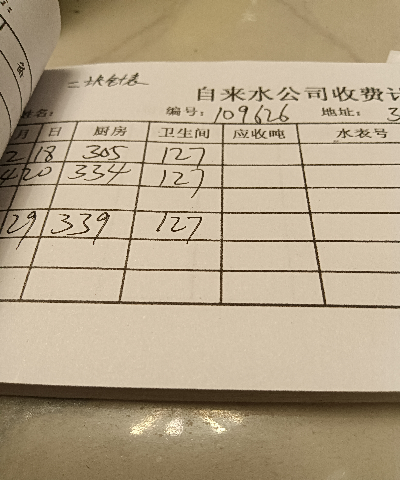 二块钟表
自来水公司收费计
姓名: 编号: 109626 地址: 3
月 日 厨房 卫生间 应收吨 水表号
2 18 305 127
4 20 334 127
29 339 127